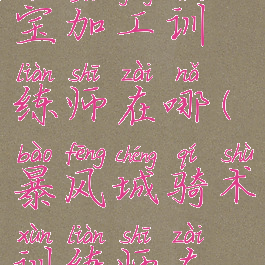 宝加工训
liàn shī zài nǎ
练师在哪(
bào fēng chéng qí shù
暴风城骑术
xùn liàn shī zài
训练师在